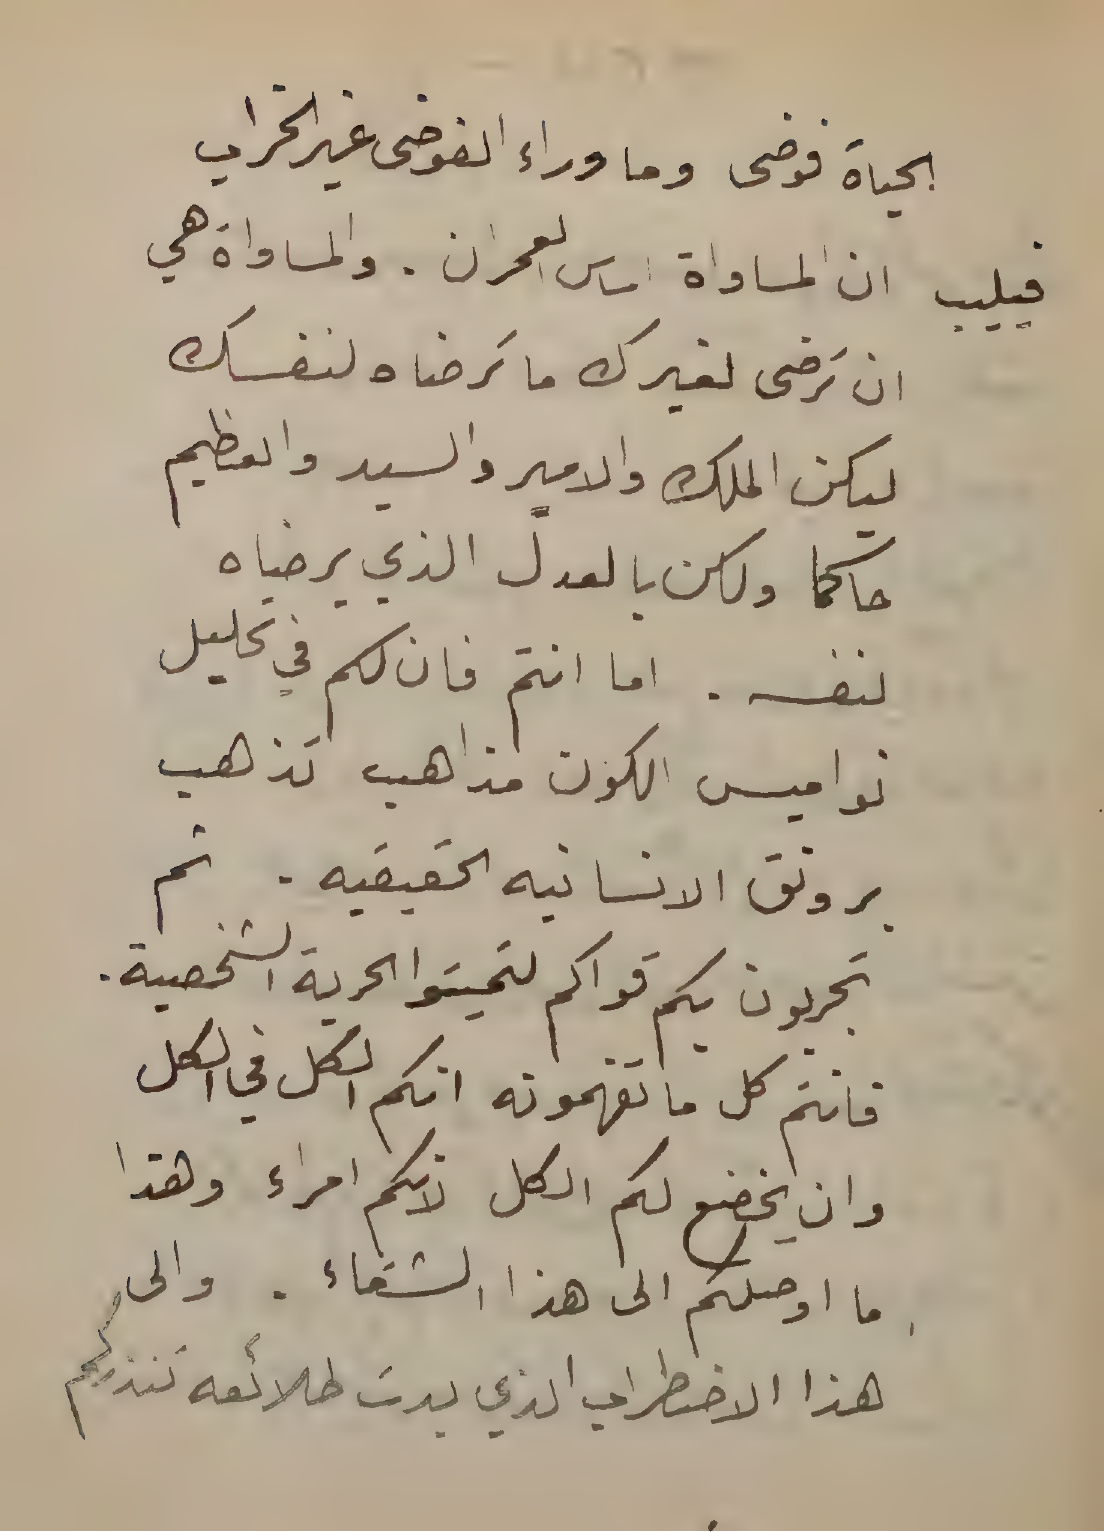 الحياة فوضى وما وراء الفوضى غير الخراب
فيليب ان المساواة اساس العمران . والمساواة هي
ان ترضى لغيرك ما ترضاه لنفسك
ليكن الملك والامير والسيد والعظيم
حاكما ولكن بالعدل الذي يرضاه
لنفسه . اما انتم فان لكم في تحليل
نواميس الكون مذاهب تذهب
برونق الانسانيه الحقيقيه . ثم
تجربون بكم قواكم لتميتوا الحرية الشخصية .
فانتم كل ما تفهمونه انكم الكل في الكل
وان يخضع لكم الكل لانكم امراء وهذا
ما اوصلكم الى هذا الشقاء . والى
هذا الاضطراب الذي بدت طلائعه تنذركم